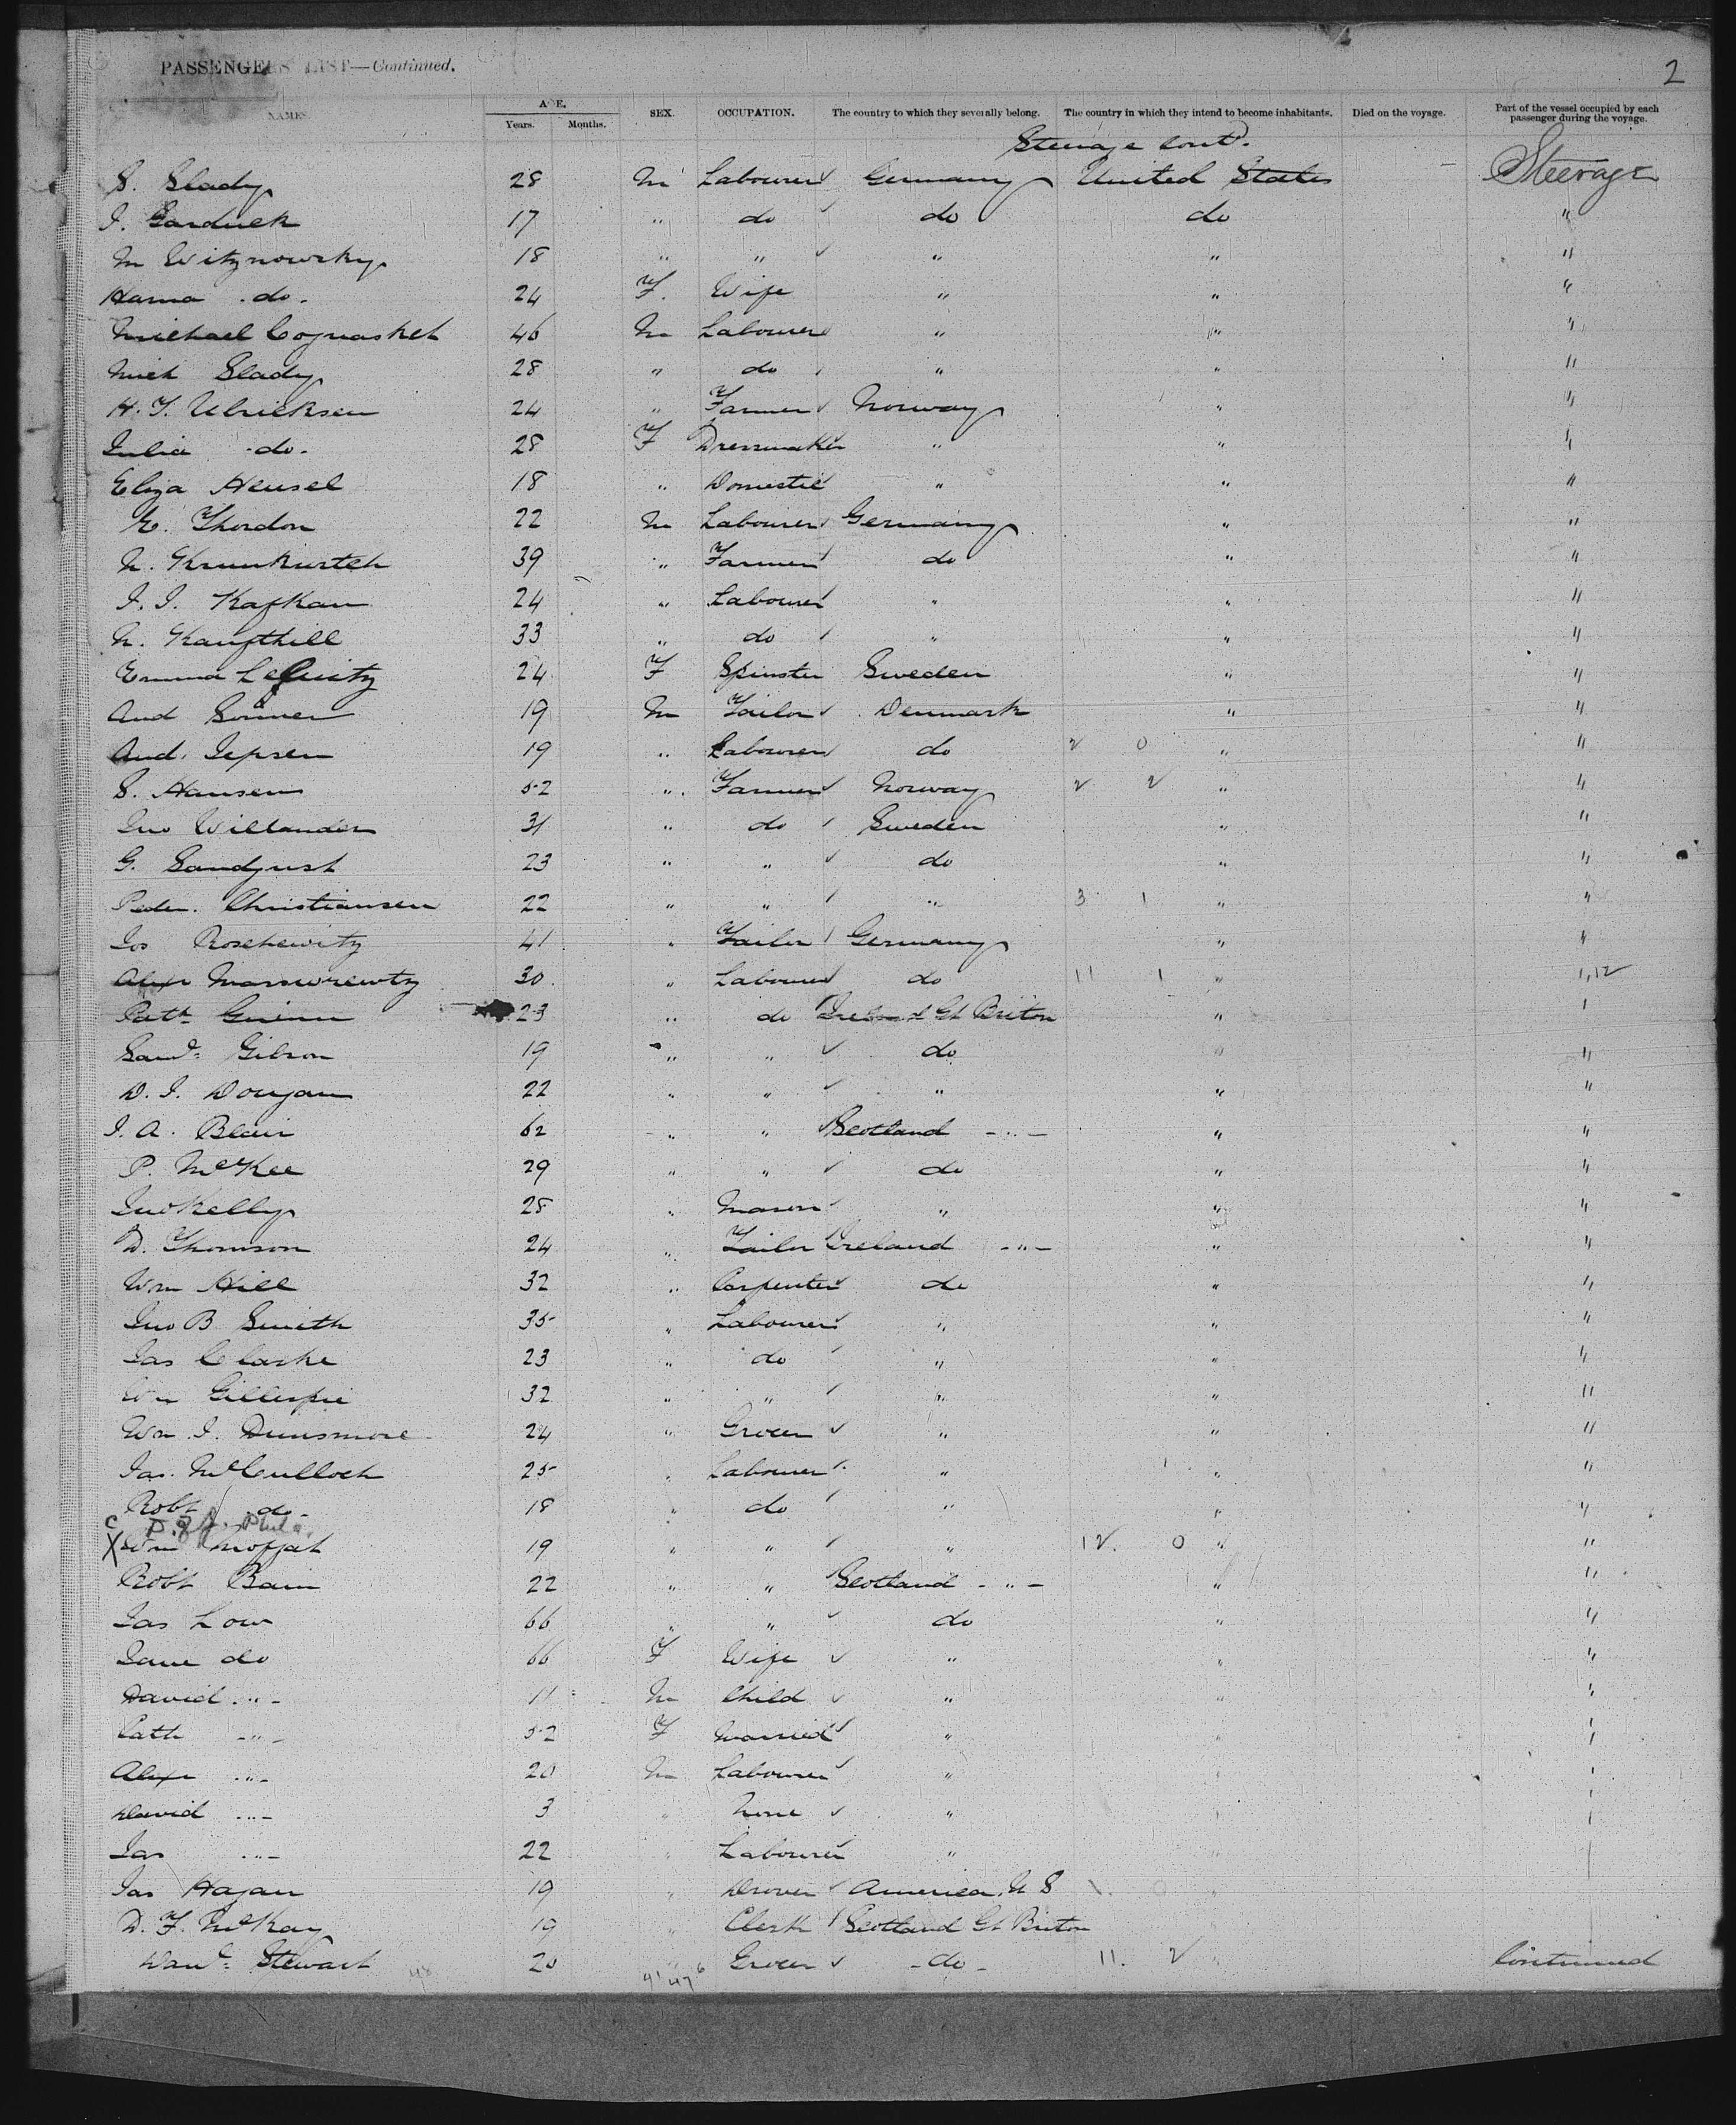 PASSENGERS LIST—Continued. 2
NAMES. AGE. Years. Months. SEX. OCCUPATION. The country to which they severally belong. The country in which they intend to become inhabitants. Died on the voyage. Part of the vessel occupied by each passenger during the voyage.
Steerage Contd.
S. Slady 28 M Labourer Germany United States Steerage
I. Garduek 17 " do do do "
M Witznowsky 18 " " " " "
Hama do. 24 F. Wife " " "
Michael 46 M Labourer " " "
Mich Slady 28 " do " " "
H. T. Ulricksen 24 " Farmer Norway " "
Julia do. 28 F Dressmaker " " "
Eliza Hensel 18 " Domestic " " "
E. Thordon 22 M Labourer Germany " "
N. 39 " Farmer do " "
I. I. Kafkau 24 " Labourer " " "
N. Kaufthill 33 " do " " "
Emma 24 F Spinster Sweden " "
And 19 M Tailor Denmark " "
And. Jepsen 19 " Labourer do 2 0 " "
S. Hansen 52 " Farmer Norway 2 2 " "
Jno Willander 31 " do Sweden " "
G. Sandqust 23 " " do " "
Peder. Christiansen 22 " " " 3 1 " "
Jos Roschewitz 41 " Tailor Germany " "
Alexr 30 " Labourer do 11 1 "
Patk 23 " do Ireland Gt Briton "
Saml. Gibson 19 " " do " "
D. J. Dougan 22 " " " " "
J. A. Blair 62 " " Scotland - " - " "
P. McKee 29 " " do " "
Jno Kelly 28 " Mason " " "
D. Thomson 24 " Tailor Ireland - " - " "
Wm Hill 32 " Carpenter do " "
Jno B Smith 35 " Labourer " " "
Jas Clarke 23 " do " " "
Wm Gillespie 32 " " " " "
Wm. J. Dunsmore 24 " Grocer " " "
Jas. McCulloch 25 " Labourer " " "
Robt do - 18 " do " " "
C
X Wm Moffat 19 " " " 12. 0 " "
Robt Bain 22 " " Scotland - " - " "
Jas Low 66 " " do " "
Jane do 66 F Wife " " "
David " - 11 M Child " " "
Cath - " - 52 F Married " "
Alexr " - 20 M Labourer "
David " - 3 " None "
Jas " - 22 " Labourer "
Jas Hagan 19 " Drover America. U S
D. F. McKay 19 " Clerk Scotland Gt Briton
Stewart 20 Grocer - do - 11. 2 Continued